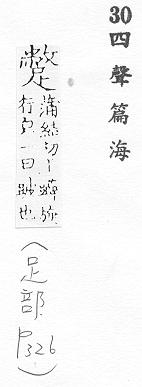 30 四聲篇海
蹩
蒲結切丨躠旋
行皃一曰跛也
(足部 P326)